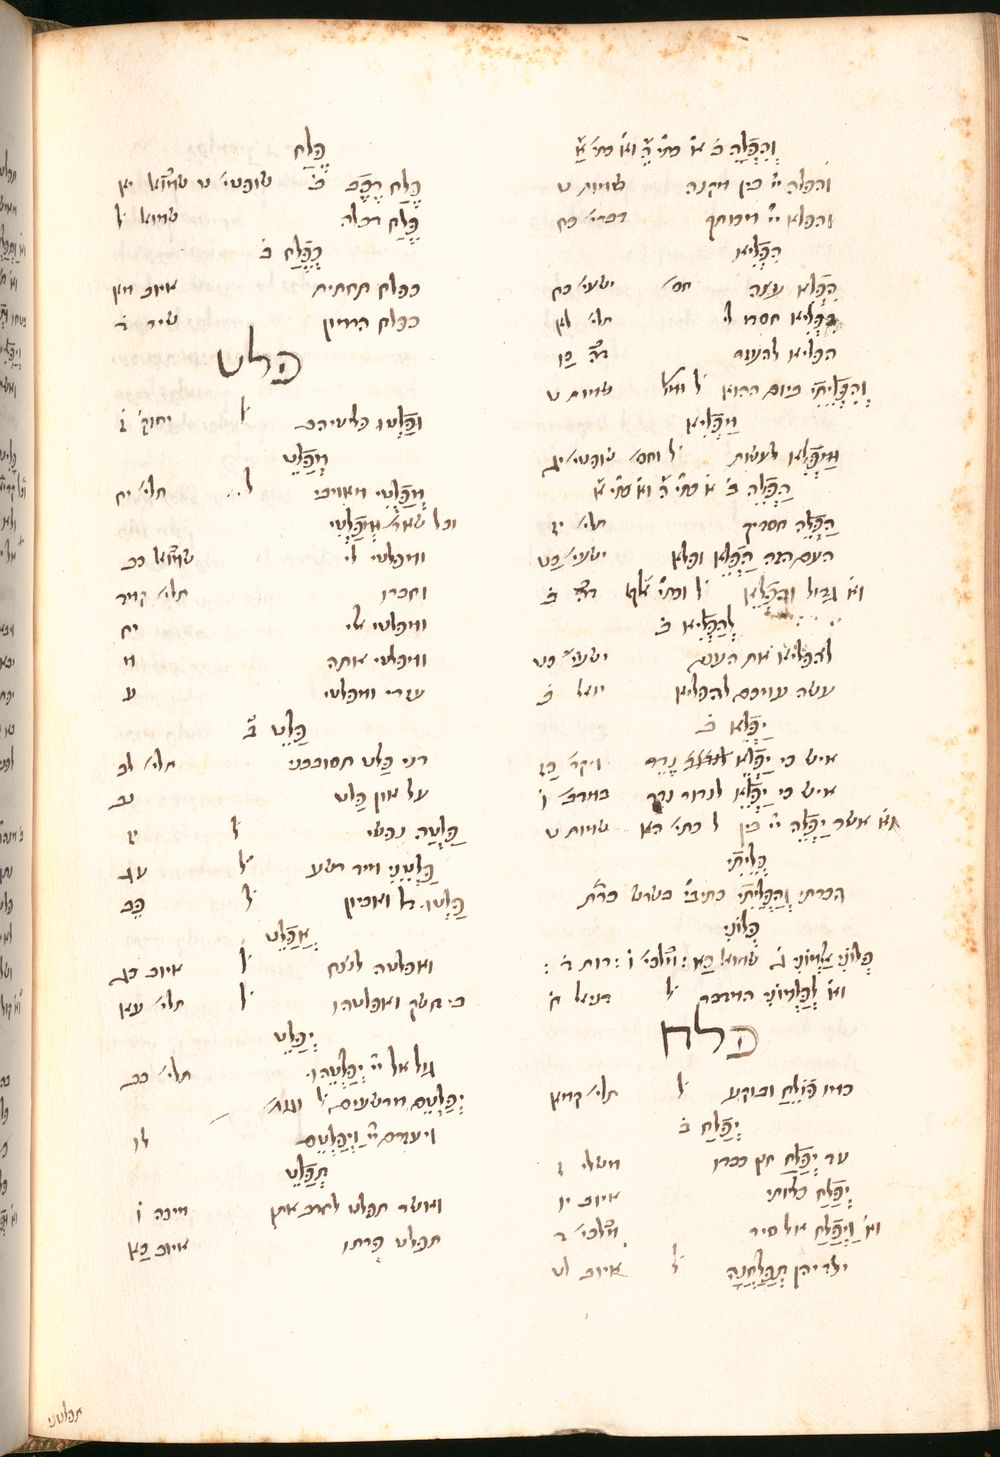 וְהִפְלָה ב׳ א׳ כתי׳ ה׳ וא׳ כתי׳ א׳
והפלה יי׳ בין מקנה שמות ט
והפלא יי׳ מכותך דברי׳ כח
הִפְלִיא
הִפְלִא עצה חס׳ ישעי׳ כח
הִפְלִיא חסדו לי תלי׳ לא
הפליא להעזר דה׳ כו
וְהִפְלֵיתִי ביום ההוא ל׳ ומל׳ שמות ט
מַפְלִיא
וּמַפְלִא לעשות ל׳ וחס׳ שופטי׳ יג
הַפְלֵה ב׳ א׳ כתי׳ ה׳ וא׳ כתי׳ א׳
הַפְלֵה חסדיך תלי׳ יז
העם הזה הַפְלֵא ופלא ישעי׳ כט
וא׳ גדול וְהַפְלֵא ל׳ וכתי׳ אלף דה׳ ב
לְהַפְלִיא ב׳
להפליא את העם ישעי׳ כט
עשה עמכם להפליא יואל ב
יַפְלִא ב׳
איש כי יַפְלִא נֶדֶר ויקר׳ כז
איש כי יַפְלִא לנדור נדר במדב׳ ו
וא׳ אשר יַפְלֶה יי׳ בין ל׳ כתי׳ הא שמות ט
פְלֵיתִי
הכרתי וְהַפְלֵיתִי כתיבי׳ בשרש כרת
פְלוֹנִי
פְלוֹנִי אַלְמוֹנִי ג׳ שמואל כא : ומלכי׳ ו : רות ד :
וא׳ לַפַּלְמוֹנִי המדבר ל׳ דניאל ח
פלח
כמו פֹּלֵחַ ובוקע ל׳ תלי׳ קמא
יְפַלַּח ב׳
עד יְפַלַּח חץ כבדו משלי ז
יְפַלַּח כליותי איוב יו
וא׳ וַיְפַלַּח אל סיר מלכי׳ ד
ילדיהן תְּפַלַּחְנָה ל׳ איוב לט
פֶּלַח
פֶּלַח רֶכֶב ב׳ שופטי׳ ט שמוא׳ יא
פֶּלַח דבלה שמוא׳ ל
כְּפֶלַח ב׳
כפלח תחתית איוב מא
כפלח הרמון שיר ד
פלט
וּפָלְטוּ פליטיהם ל׳ יחזק׳ ז
מְפַלֵּט
מְפַלְּטִי מאויבי ל׳ תלי׳ יח
וכל שאר׳ וּמְפַלְטִי
ומפלטי לי שמוא׳ כב
וחברו תלי׳ קמד
ומפלטי אלי יח
ומפלטי אתה מ
עזרי ומפלטי ע
פַּלֵּט ב׳
רני פַלֵּט תסובבני תלי׳ לב
על און פַּלֵּט נו
פַּלְּטָה נפשי ל׳ יז
פַּלְּטֵנִי מיד רשע ל׳ עא
פַּלְּטוּ דל ואביון ל׳ פב
אֲפַלֵּט
ואפלטה לנצח ל׳ איוב כג
כי בי חשק ואפלטהו ל׳ תלי׳ צא
יְפַלֵּט
גול אל יי׳ יְפַלְּטֵהוּ תלי׳ כב
יְפַלְּטֵם מרשעים ל׳
ויעזרם יי׳ וַיְפַלְּטֵם לז
תְּפַלֵּט
ואשר תפלט לחרב אתן מיכה ו
תפלט פרתו איוב כא
תפלטני